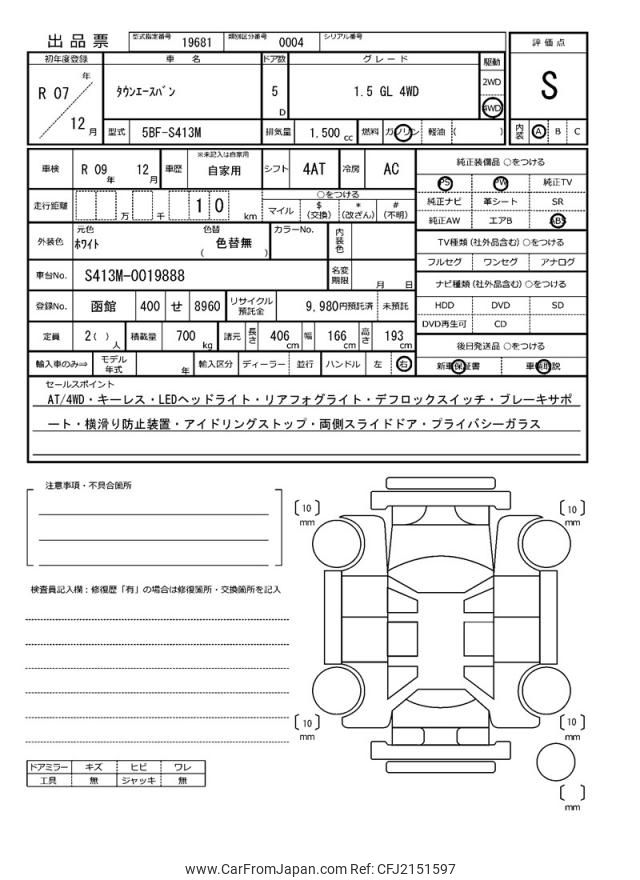 出品票 型式指定番号 19681 類別区分番号 0004 シリアル番号
評価点
S
内装 A B C
初年度登録 車名 ドア数 グレード 駆動
R 07 年 12 月 ﾀｳﾝｴｰｽﾊﾞﾝ 5 D 1.5 GL 4WD 2WD 4WD
型式 5BF-S413M 排気量 1.500 cc 燃料 ガソリン 軽油 ( )
車検 R 09 年 12 月 車歴 ※未記入は自家用 自家用 シフト 4AT 冷房 AC
走行距離 万 千 1 0 km ○をつける
マイル $(交換) *(改ざん) #(不明)
外装色 元色 ﾎﾜｲﾄ 色替 色替無 ( ) カラーNo. 内装色
車台No. S413M-0019888 名変期限 月 日
登録No. 函館 400 せ 8960 リサイクル預託金 9,980円預託済 未預託
定員 2( ) 人 積載量 700 kg 諸元 長さ 406 cm 幅 166 cm 高さ 193 cm
輸入車のみ⇒ モデル年式 年 輸入区分 ディーラー 並行 ハンドル 左 右
純正装備品 ○をつける
PS PW 純正TV
純正ナビ 革シート SR
純正AW エアB ABS
TV種類 (社外品含む) ○をつける
フルセグ ワンセグ アナログ
ナビ種類 (社外品含む) ○をつける
HDD DVD SD
DVD再生可 CD
後日発送品 ○をつける
新車保証書 車輌取説
セールスポイント
AT/4WD・キーレス・LEDヘッドライト・リアフォグライト・デフロックスイッチ・ブレーキサポ
ート・横滑り防止装置・アイドリングストップ・両側スライドドア・プライバシーガラス
注意事項・不具合箇所
検査員記入欄：修復歴「有」の場合は修復箇所・交換箇所を記入
ドアミラー キズ ヒビ ワレ
工具 無 ジャッキ 無
10 mm
10 mm
10 mm
10 mm
mm
www.CarFromJapan.com Ref: CFJ2151597